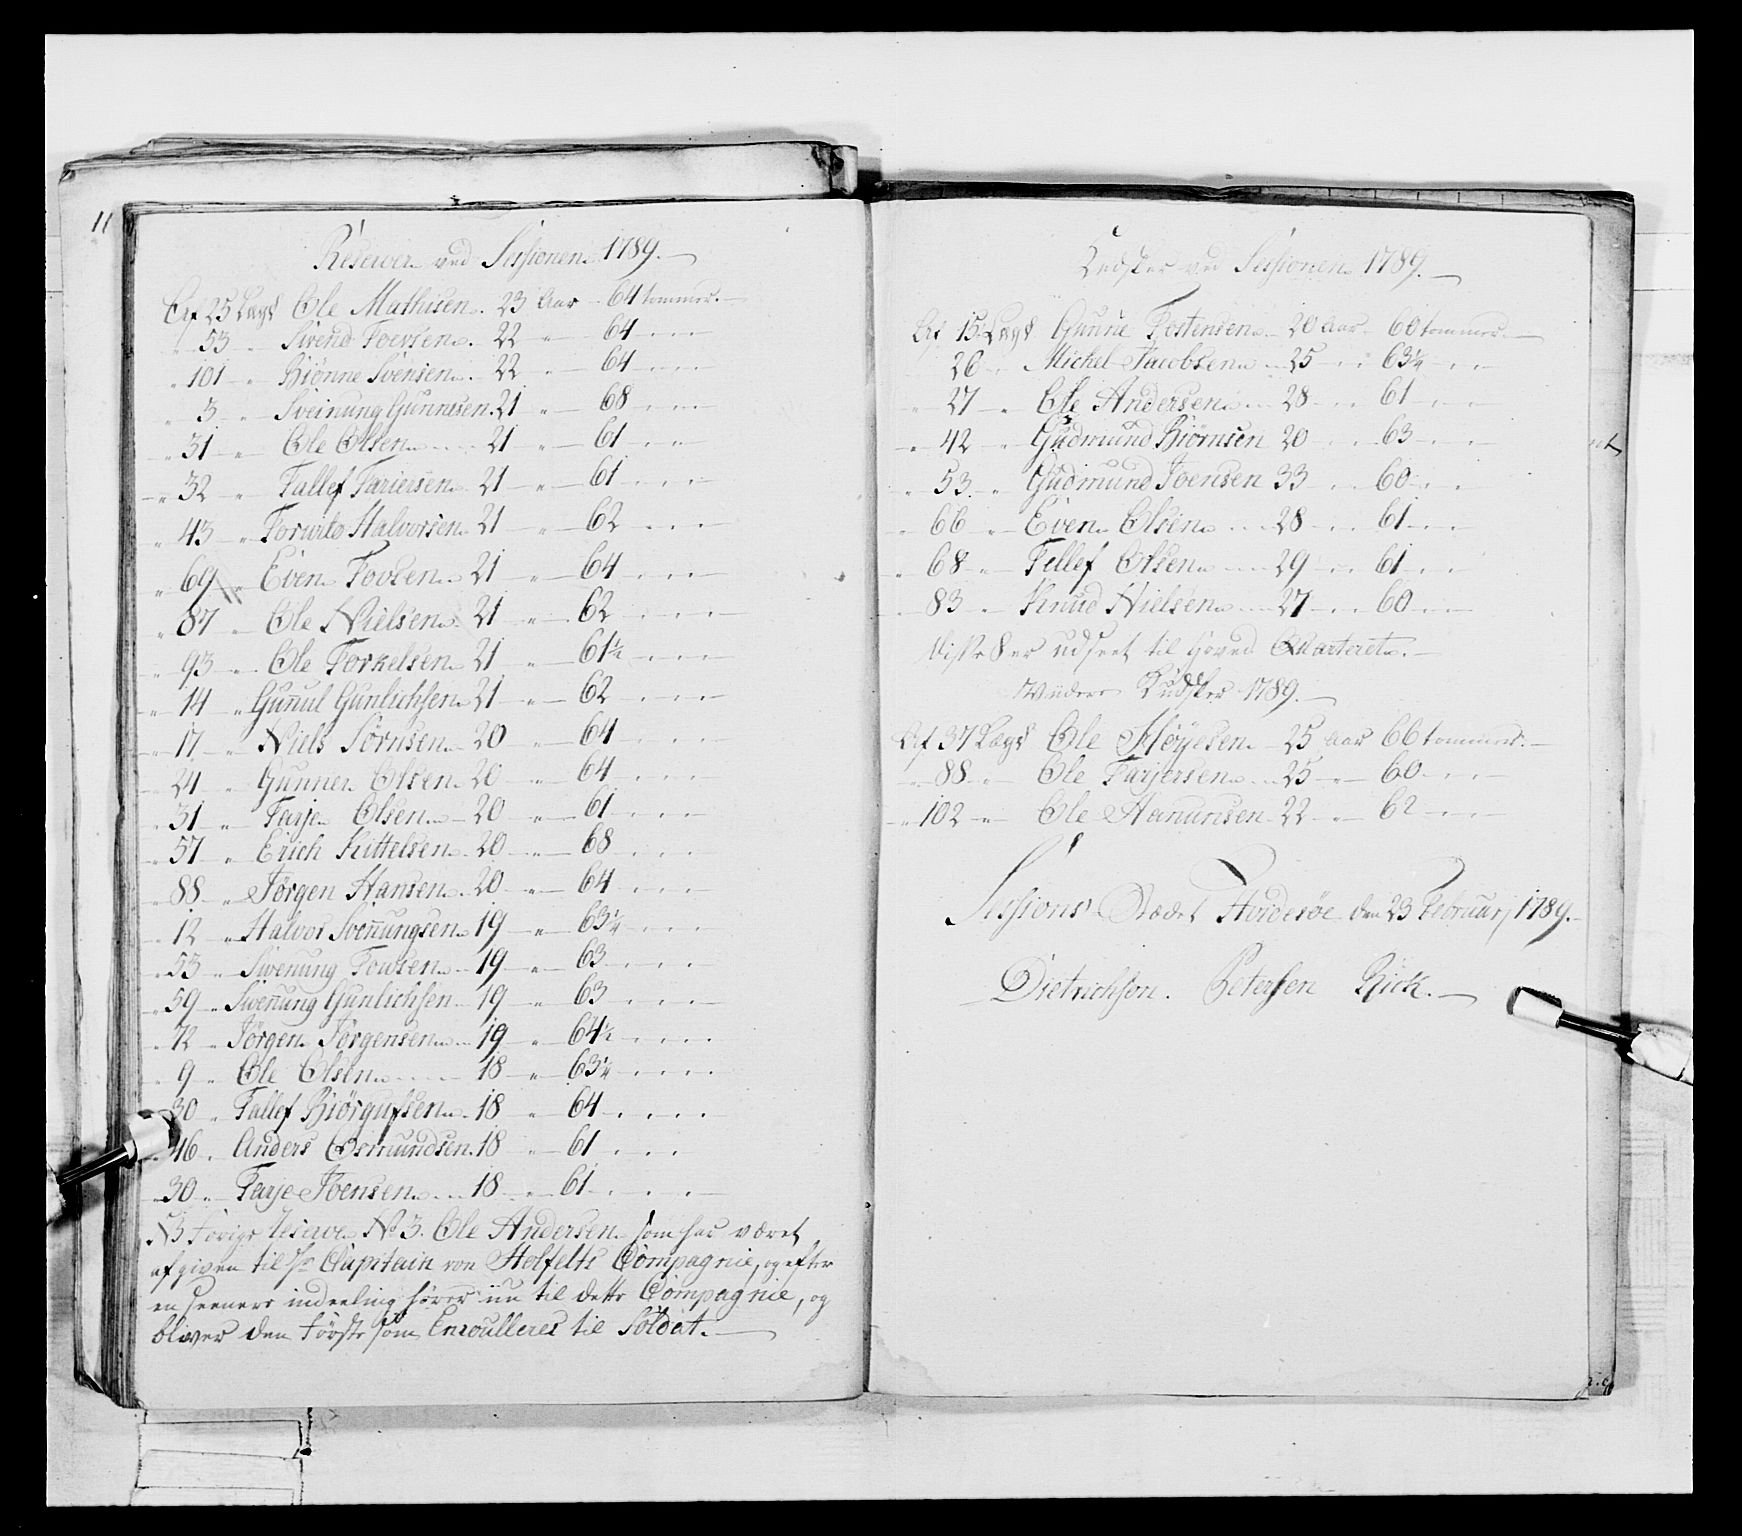 11
Reserver ved Sessionen 1789.
Af 25 Lægd Ole Mathisen. 23 Aar 64 tommer.
" 53 " Svend Toevsen. 22 " 64
" 101 " Biönne Svensen. 22 " 64
" 3 " Sveinung Gunnesen. 21 " 68
" 31 " Ole Olsen 21 " 61
" 32 " Tallef Tarjersen. 21 " 61
" 43 " Halvorsen. 21 " 62
" 69 " Even Tovsen. 21 " 64
" 87 " Ole Nielsen. 21 " 62
" 93 " Ole Torkelsen. 21 " 61½
" 14 " Gunnul Gunlichsen. 21 " 62
" 17 " Niels Sörnsen. 20 " 64
" 21 " Gunner Olsen. 20 " 64
" 31 " Tarje Olsen. 20 " 61
" 57 " Erich Kittelsen. 20 " 68
" 88 " Jörgen Hansen. 20 " 64
" 12 " Halvor Svennungsen 19 " 63¼
" 53 " Swenung Towsen. 19 " 63
" 59 " Swenung Gunlichsen 19 " 63
" 72 " Jörgen Jörgensen 19 " 64½
" 9 " Ole Olsen 18 " 63¼
" 30 " Tallef Biörgufsen. 18 " 64
" 46 " Anders Osmundsen. 18 " 61
" 30 " Tarje Joensen 18 " 61
NB Forige Reserve No 3. Ole Andersen som har været
afgiven til Hr Capitain von Holfelts Compagnie, og efter
en seenere indeeling hører nu til dette Compagnie, og
bliver den første som Enroulleres til Soldat.
Ledsker ved Sessionen 1789.
Af 15 Lægd Gunne Tostensen 20 Aar 60 tommer.
26 " Michel Jacobsen 25 63¼
" 27 " Ole Andersen 28 61
" 42 " Gudmund Biörnsen 20 63
" 53 " Gudmund Joensen 33 60
" 66 " Even Olsen 28 61
" 68 " Tellef Olsen 29 61
" 83 " Knud Nielsen 27 60
Disse 8 er udseet til Hoved Qvarteret.
Kudsker 1789.
Af 37 Lægd Ole Höyesen 25 Aar 66 tommer.
" 88 " Ole Tarjersen 25 " 60
" 102 " Ole Aanunsen 22 " 62
Sessions Stædet Hordesöe den 23 Februarj 1789.
Dietrichson. Petersen Rick.